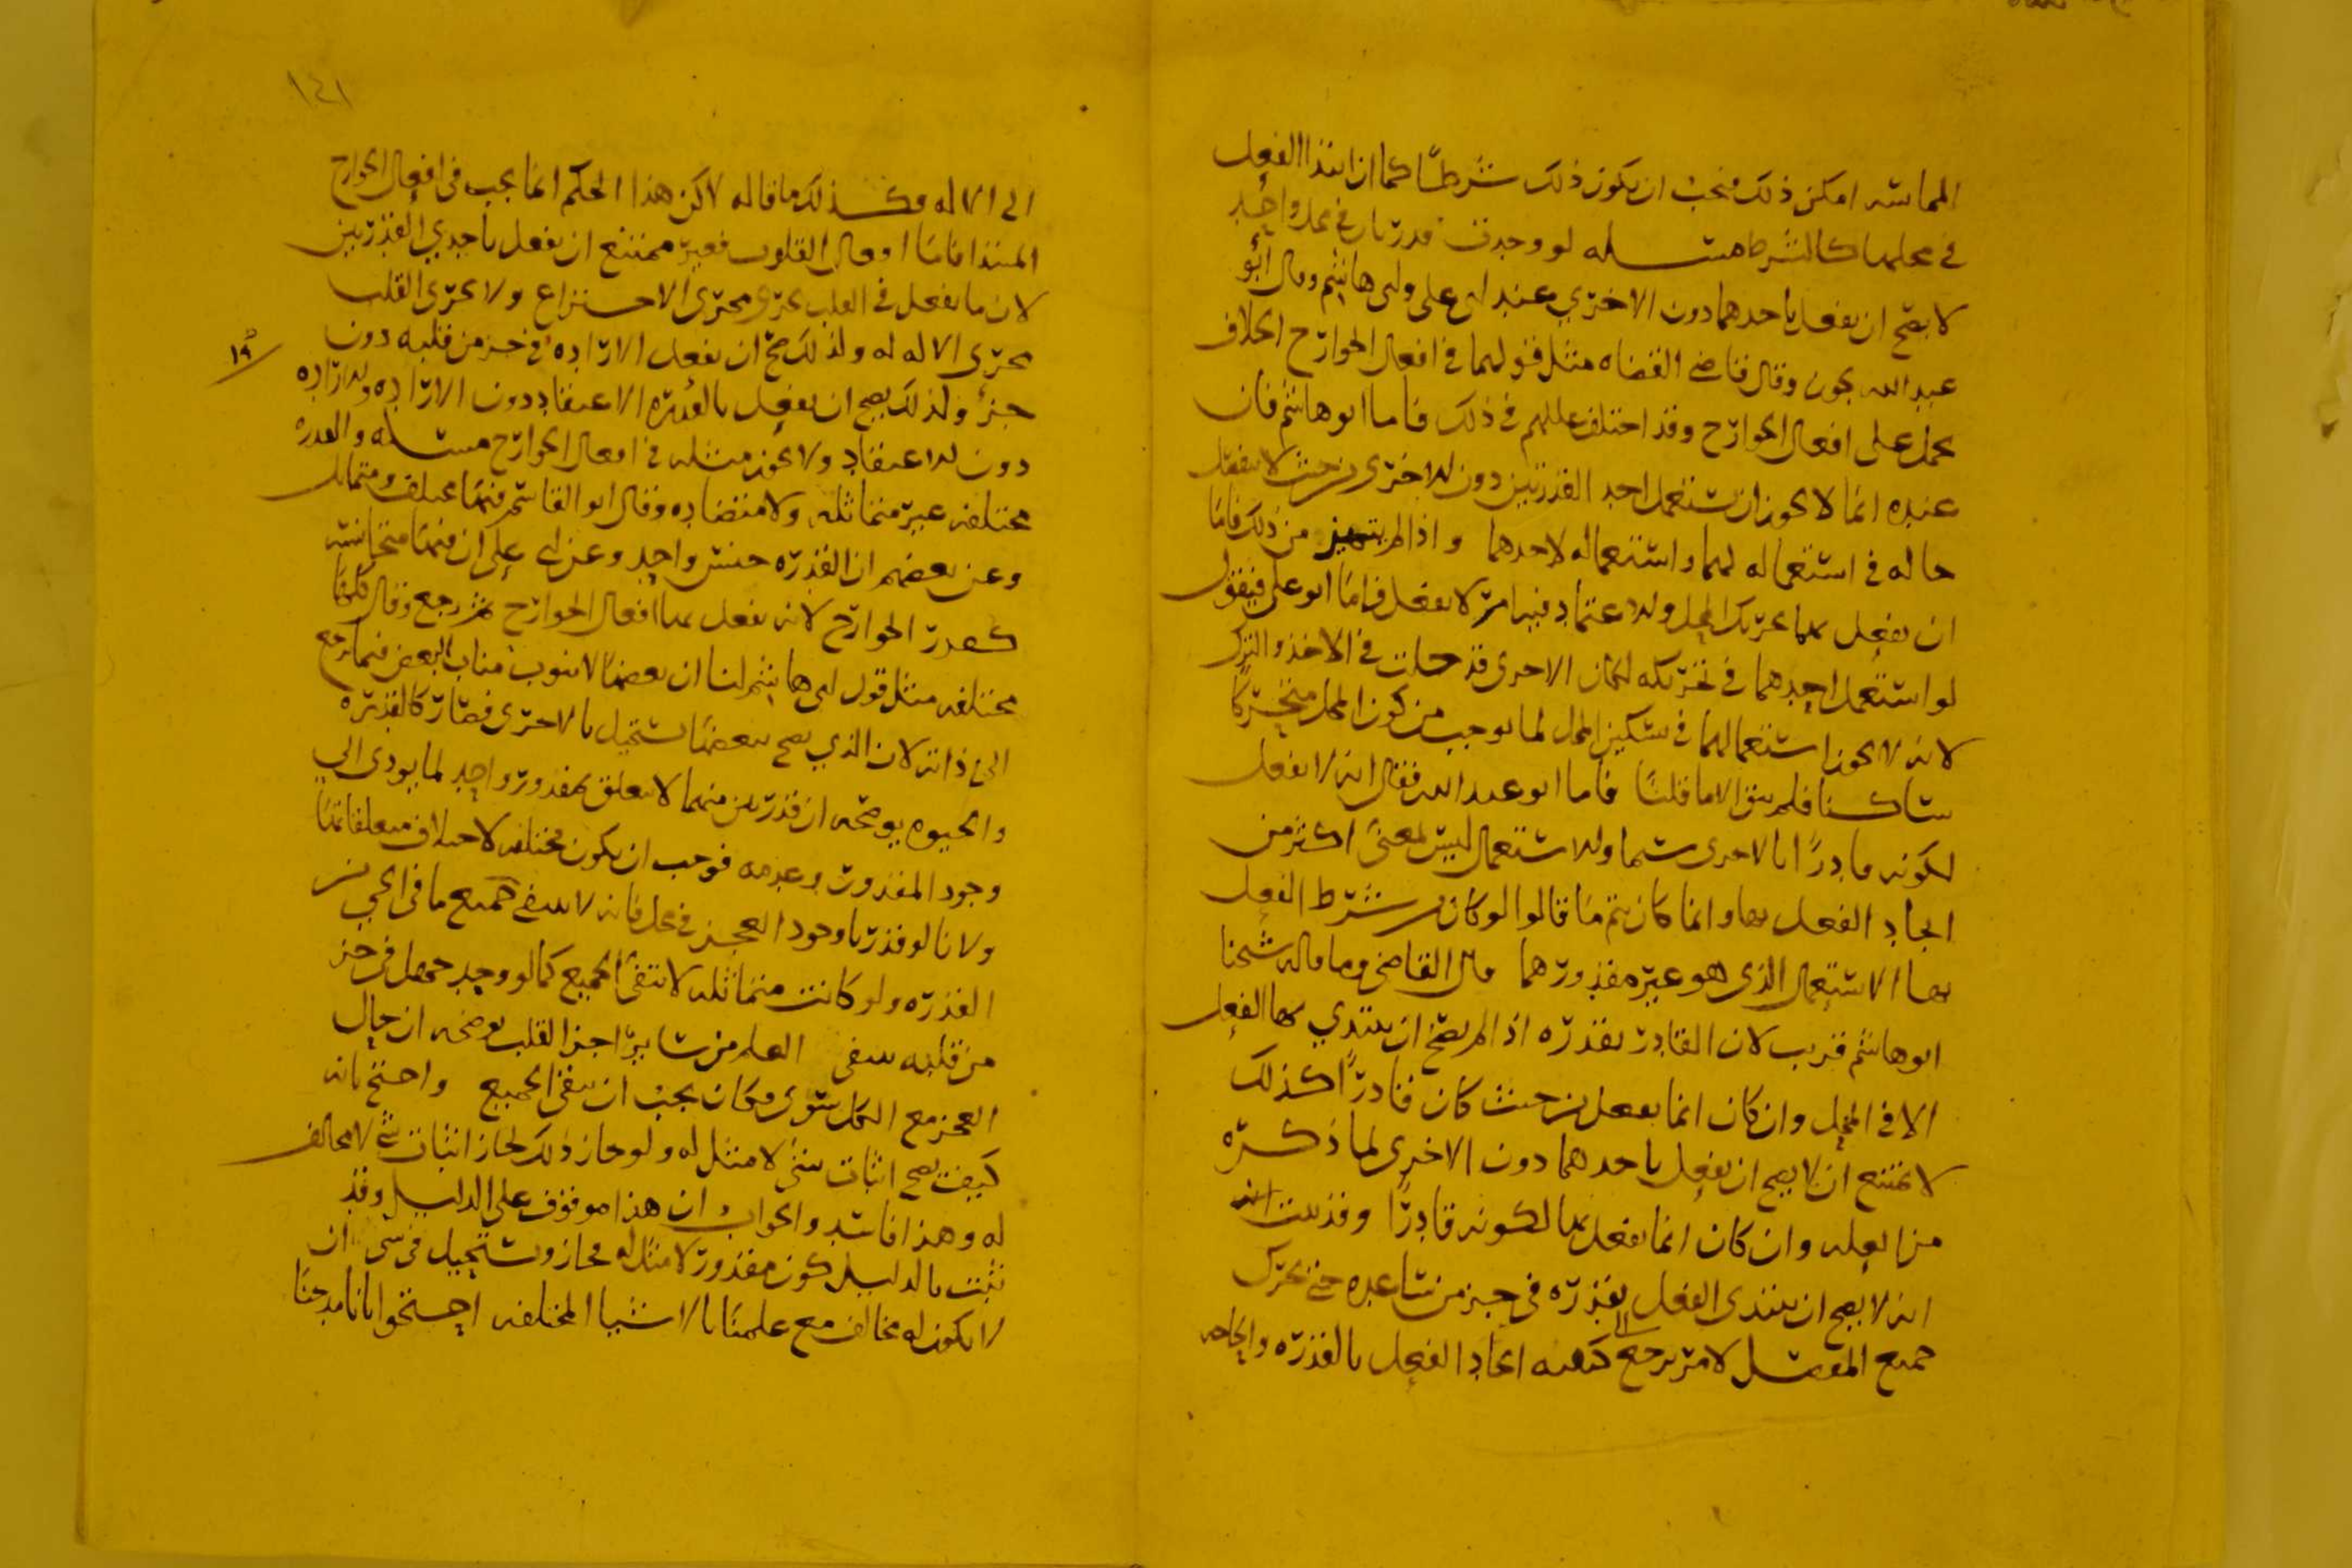 المماسه امكن ذلك فيجب ان يكون ذلك شرطا كما ان ابتدا الفعل
في محلها كالشرط مسله لو وجدت قدرتان في محل واحد
لا يصح ان يفعل باحدهما دون الاخرى عند ابى على وابى هاشم وقال ابو
عبد الله يجوز وقال قاضي القضاه مثل قولهما في افعال الجوارح الخلاف
يحمل على افعال الجوارح وقد اختلف عللهم في ذلك فاما ابو هاشم فان
عنده انما لا يجوز ان يستعمل احد القدرتين دون الاخرى من حيث لا ينفصل
حاله في استعماله لهما واستعماله لاحدهما واذا لم يتميز من ذلك فاما
ان يفعل بهما تحريك المحل والاعتماد فيه امر لا يفعل فاما ابو على فيقول
لو استعمل احدهما في تحريكه لكان الاخرى قد دخلت في الاخذ والترك
لانه لا يجوز استعمالها في تسكين المحل لما يوجب من كون المحل متحركا
ساكنا فلم يبق الا ما قلنا فاما ابو عبد الله فقال انه لا يفعل
لكونه قادرا بالاخرى شيا والاستعمال ليس لمعنى اكثر من
ايجاد الفعل بها وانما كان يتم ما قالوا لو كان من شرط الفعل
بها الاستعمال الذي هو غير مقدورهما قال القاضي وما قاله شيخنا
ابو هاشم قريب لان القادر بقدره اذا لم يصح ان يبتدي بها الفعل
الا في المحل وان كان انما يفعل من حيث كان قادرا كذلك
لا يمتنع ان لا يصح ان يفعل باحدهما دون الاخرى لما ذكره
من العله وان كان انما يفعل بها لكونه قادرا وقد ثبت
انه لا يصح ان يبتدى الفعل بقدره في جزء من ساعده حتى يحرك
جميع المفصل لامر يرجع الى كيفيه ايجاد الفعل بالقدره والحاجه
١٤١
الى الاله فكذلك ما قاله لاكن هذا الحكم انما يجب في افعال الجوارح
المبتدا فاما افعال القلوب فغير ممتنع ان يفعل باحدي القدرتين
لان ما يفعل في القلب يجرى مجرى الاختراع ولا يجرى القلب
مجرى الاله له ولذلك صح ان يفعل الاراده في جزء من قلبه دون
جزء ولذلك يصح ان يفعل بالقدره الاعتقاد دون الاراده والاراده
دون الاعتقاد ولا يجوز مثله في افعال الجوارح مسله والقدره
مختلفه غير متماثله ولا متضاده وقال ابو القاسم فيها مختلف ومتماثل
وعن بعضهم ان القدره جنس واحد وعن ابى على ان فيها متجانسه
كقدر الجوارح لانه يفعل بها افعال الجوارح ثم رجع وقال كلها
مختلفه مثل قول ابى هاشم لنا ان بعضها لا ينوب مناب البعض فيما يرجع
الى ذاته لان الذي يصح ببعضها يستحيل بالاخرى فصار كالقدره
والحيوه يوضحه ان قدرتين منهما لا يتعلق بمقدور واحد لما يودى الى
وجود المقدور وعدمه فوجب ان يكون مختلفه لاختلاف متعلقاتها
ولانا لو قدرنا وجود العجز في محل فانه لا ينفي جميع ما في الحي من
القدره ولو كانت متماثله لانتفى الجميع كما لو وجد جهل في جزء
من قلبه ينفي العلم من ساير اجزا القلب يوضحه ان حال
العجز مع الكل سوى فكان يجب ان ينفي الجميع واحتج بانه
كيف يصح اثبات شيء لا مثل له ولو جاز ذلك لجاز اثبات شيء لا مخالف
له وهذا فاسد والجواب ان هذا موقوف على الدليل وقد
ثبت بالدليل كون مقدور لا مثل له فجاز ويستحيل في شي ان
لا يكون له مخالف مع علمنا بالاشيا المختلفه احتجوا بانا مدحنا
١٩